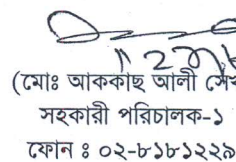 (মোঃ আককাছ আলী সেখ
সহকারী পরিচালক-১
ফোন ঃ ০২-৮১৮১২২৯